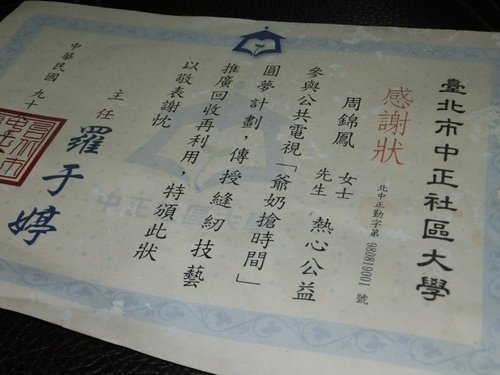 臺北市中正社區大學
感謝狀
北中正勤字第 980819001 號
周錦鳳 女士 先生 熱心公益
參與公共電視「爺奶搶時間」
圓夢計劃，傳授縫紉技藝
推廣回收再利用，特頒此狀
以敬表謝忱
主任 羅于婷
中華民國 九十